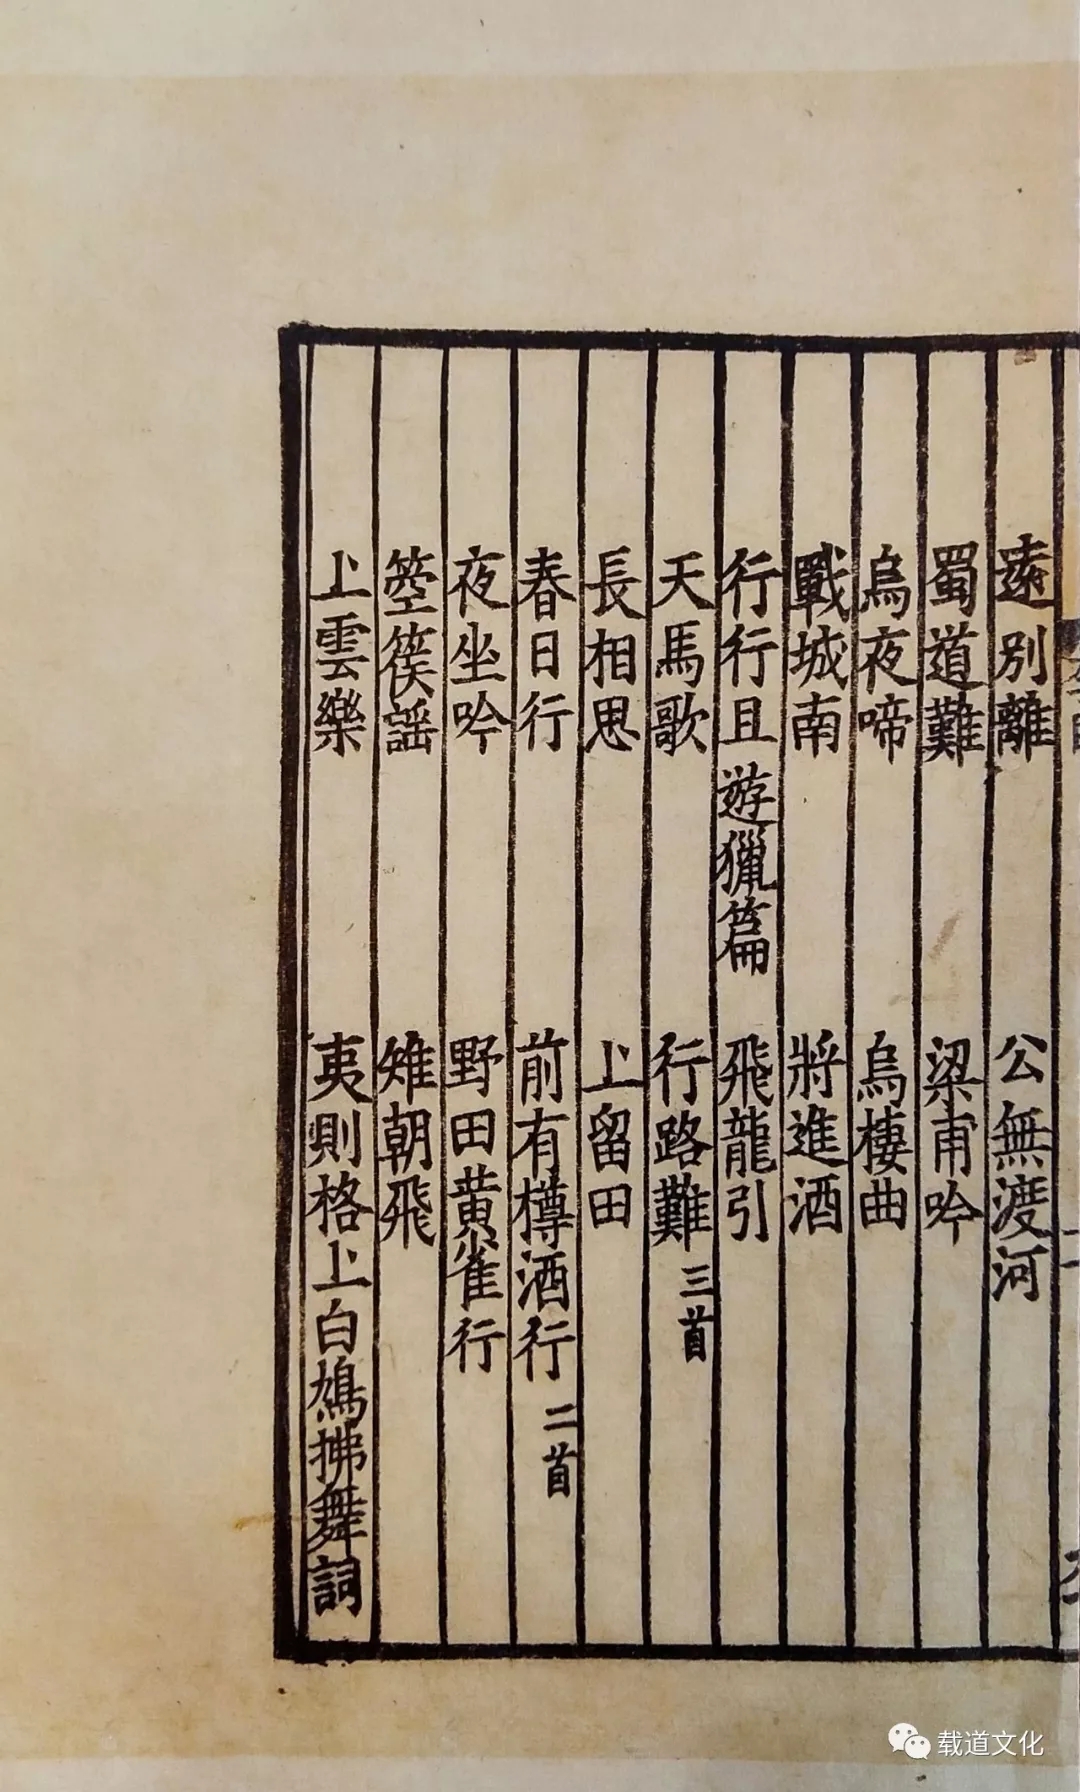 遠別離 公無渡河
蜀道難 梁甫吟
烏夜啼 烏棲曲
戰城南 將進酒
行行且遊獵篇 飛龍引
天馬歌 行路難三首
長相思 上留田
春日行 前有樽酒行二首
夜坐吟 野田黃雀行
箜篌謡 雉朝飛
上雲樂 夷則格上白鳩拂舞詞
载道文化